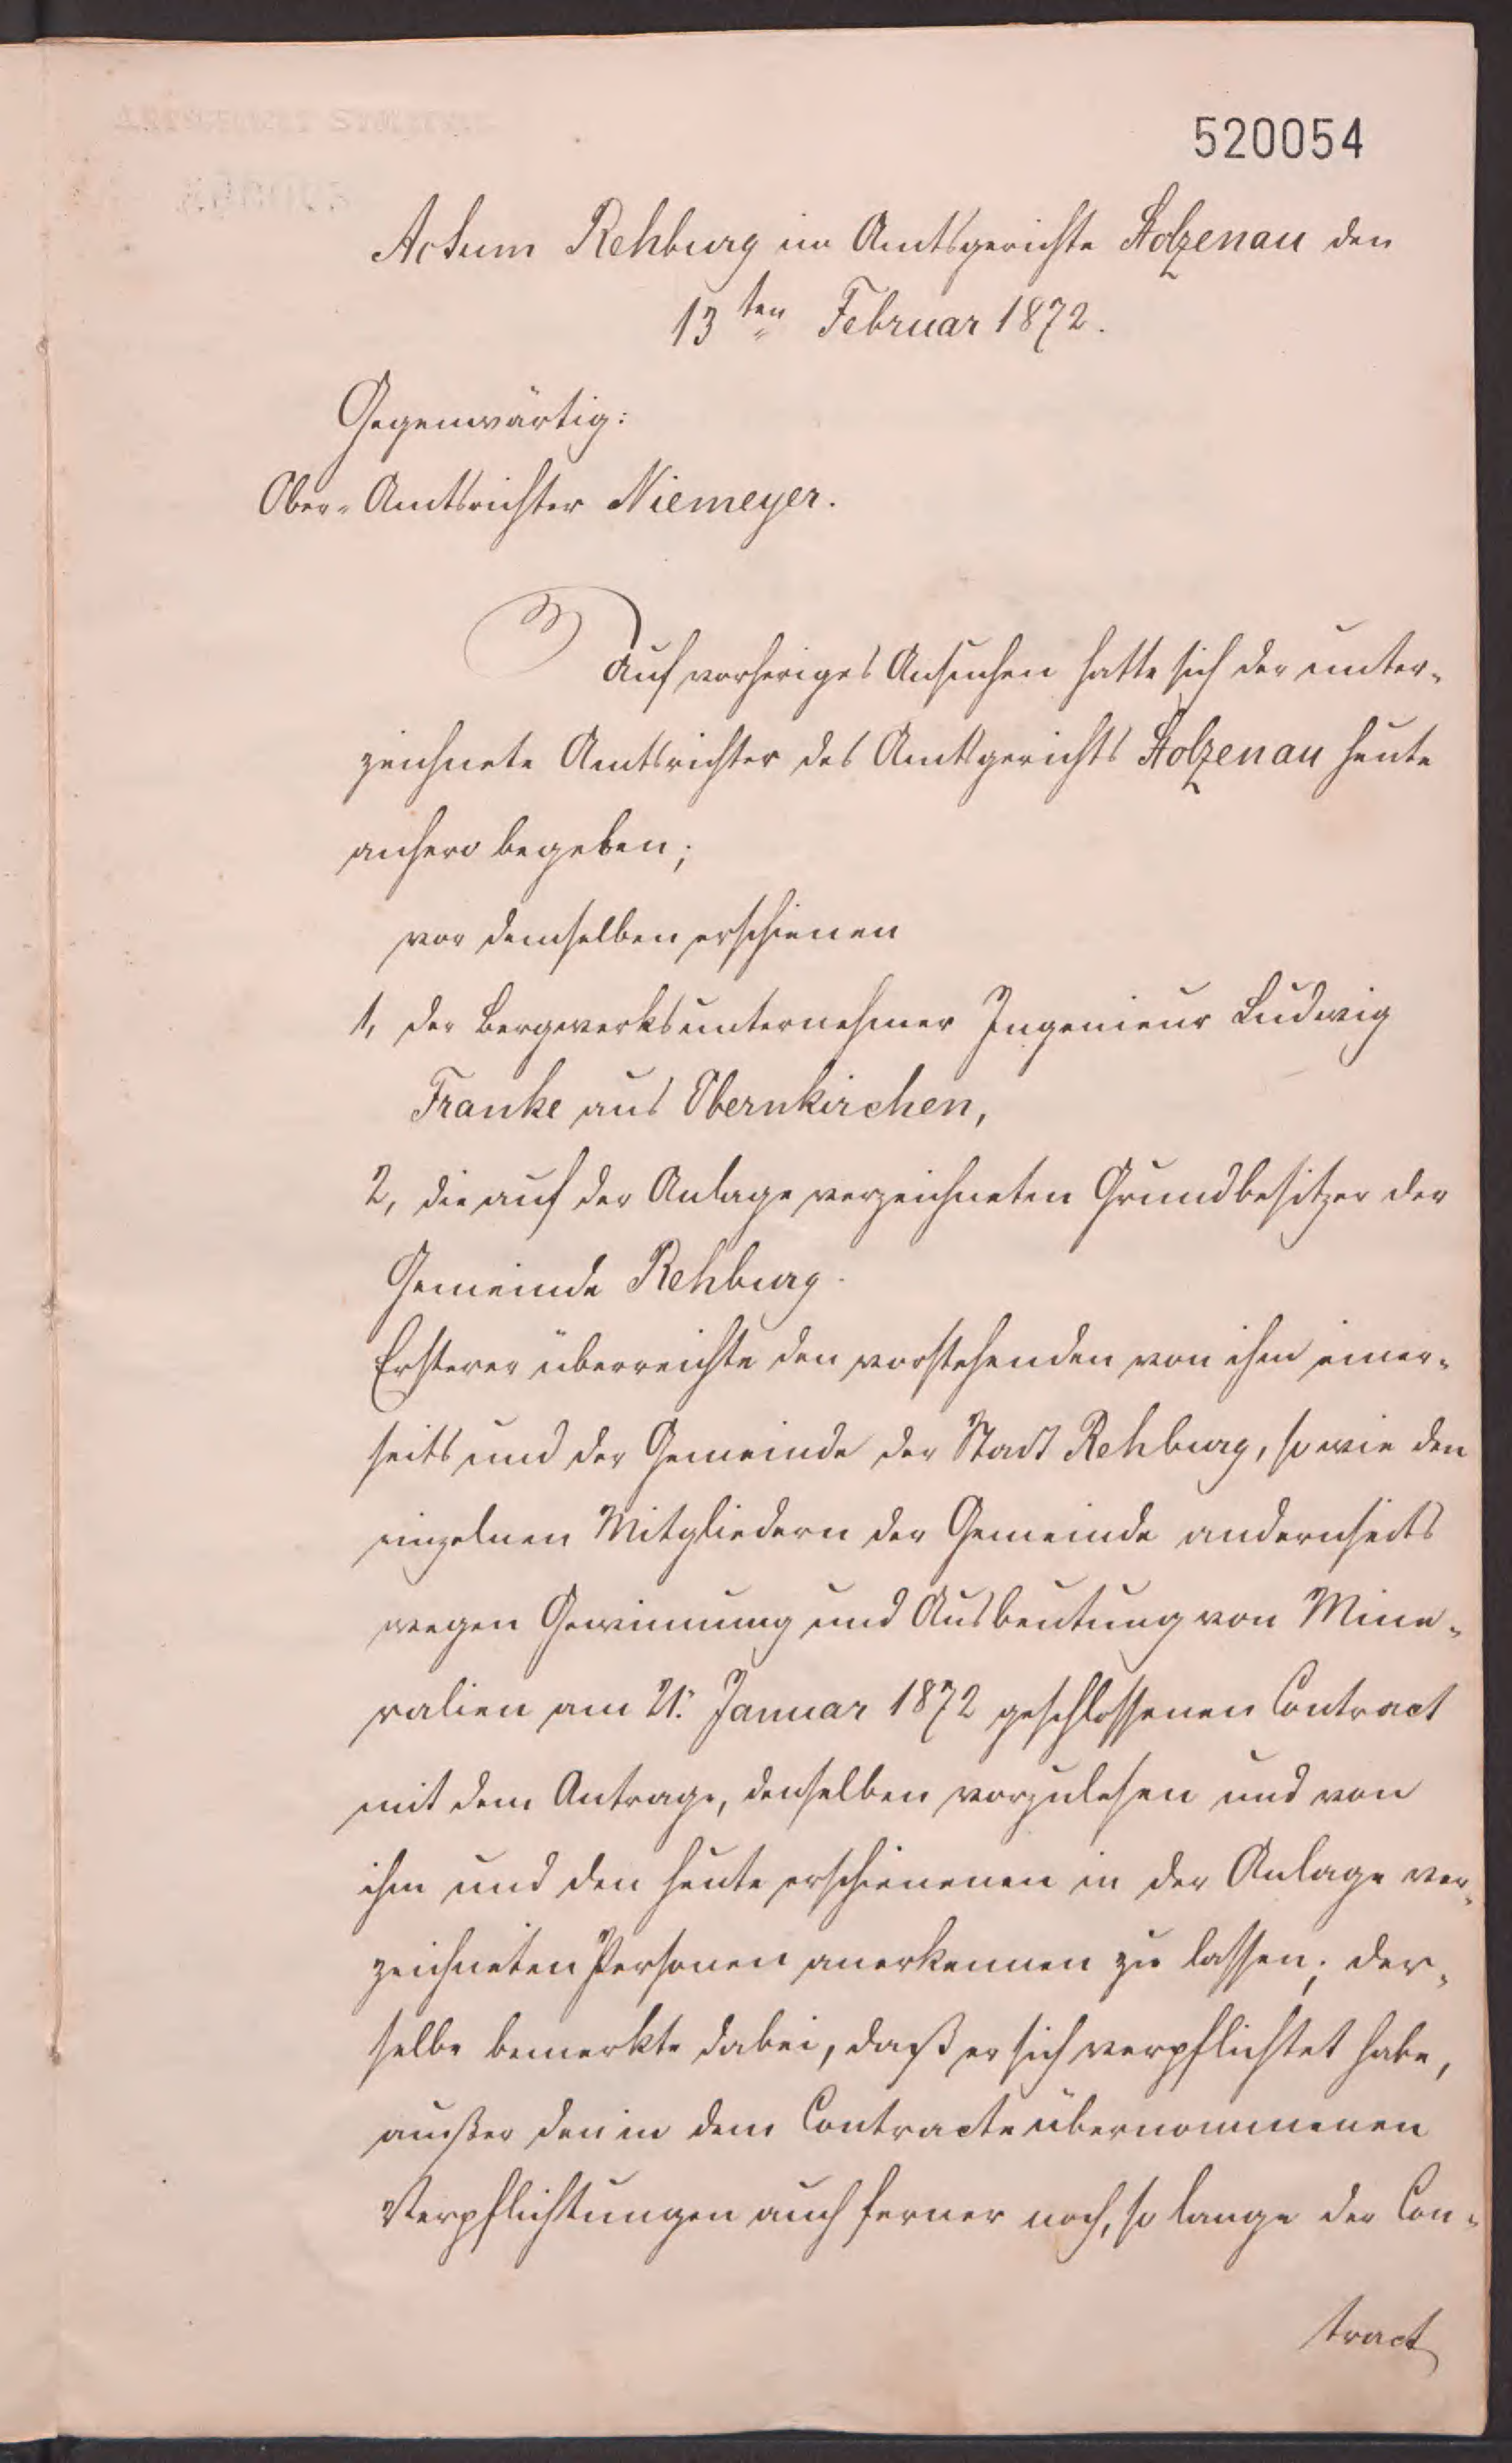 520054
Actum Rehburg im Amtsgerichte Stolzenau den
13ten Februar 1872.
Gegenwärtig:
Ober-Amtsrichter Niemeyer.
Auf vorheriges Ansuchen hatte sich der unter-
zeichnete Amtsrichter des Amtsgerichts Stolzenau heute
anhero begeben;
vor demselben erschienen
1, der Bergwerksunternehmer Ingenieur Ludwig
Franke aus Obernkirchen,
2, die auf der Anlage verzeichneten Grundbesitzer der
Gemeinde Rehburg.
Ersterer überreichte den vorstehenden von ihm einer-
seits und der Gemeinde der Stadt Rehburg, sowie den
einzelnen Mitgliedern der Gemeinde andernseits
wegen Gewinnung und Ausbeutung von Mine-
ralien am 21. Januar 1872 geschlossenen Contract
mit dem Antrage, denselben vorzulesen und von
ihm und den heute erschienenen in der Anlage ver-
zeichneten Personen anerkennen zu lassen; der-
selbe bemerkte dabei, daß er sich verpflichtet habe,
außer den in dem Contracte übernommenen
Verpflichtungen auch ferner noch, so lange der Con-
tract